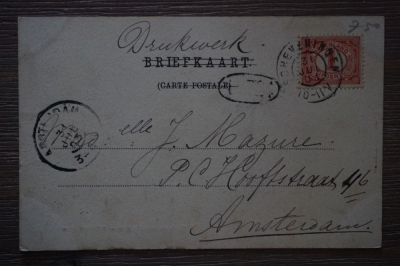 7.50
Drukwerk
BRIEFKAART
(CARTE POSTALE)
SCHEVENINGEN
AMSTERDAM
elle J. Mazure.
P. C. Hooftstraat 46
Amsterdam.